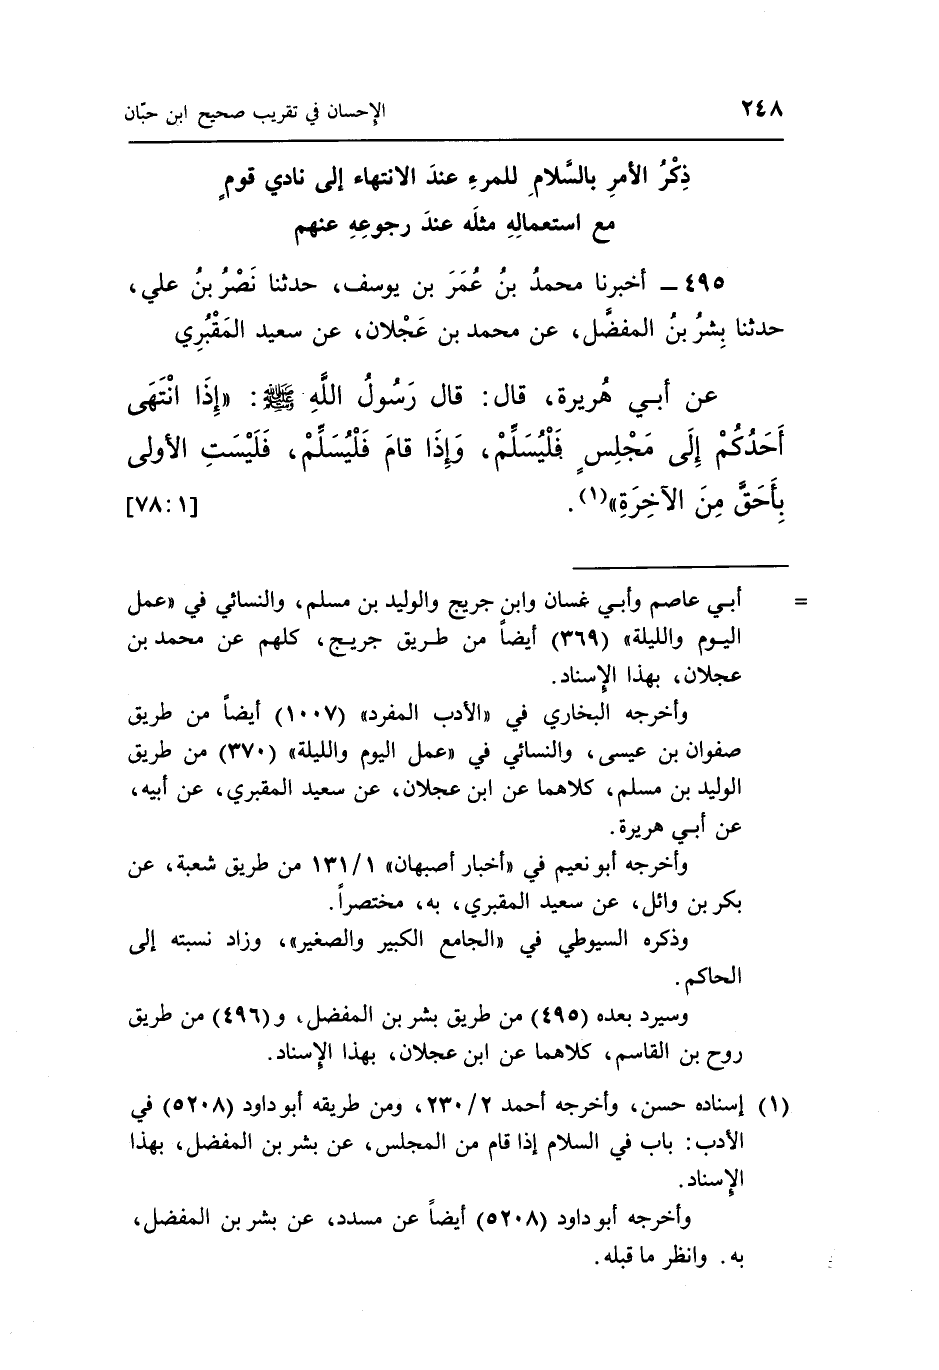 ٢٤٨ الإحسان في تقريب صحيح ابن حبّان
ذِكْرُ الأمرِ بالسَّلامِ للمرءِ عندَ الانتهاء إلى نادي قومٍ
مع استعمالِهِ مثلَه عندَ رجوعِهِ عنهم
٤٩٥ ـ أخبرنا محمدُ بنُ عُمَرَ بن يوسف، حدثنا نَصْرُ بنُ علي،
حدثنا بِشرُ بنُ المفضَّل، عن محمد بن عَجْلان، عن سعيد المَقْبُرِي
عن أبي هُريرة، قال: قال رَسُولُ اللَّهِ ﷺ: «إِذَا انْتَهَى
أَحَدُكُمْ إِلَى مَجْلِسٍ فَلْيُسَلِّمْ، وَإِذَا قامَ فَلْيُسَلِّمْ، فَلَيْسَتِ الأولى
بِأَحَقَّ مِنَ الآخِرَةِ»(١). [١: ٧٨]
= أبي عاصم وأبي غسان وابن جريج والوليد بن مسلم، والنسائي في «عمل
اليوم والليلة» (٣٦٩) أيضاً من طريق جريج، كلهم عن محمد بن
عجلان، بهذا الإسناد.
وأخرجه البخاري في «الأدب المفرد» (١٠٠٧) أيضاً من طريق
صفوان بن عيسى، والنسائي في «عمل اليوم والليلة» (٣٧٠) من طريق
الوليد بن مسلم، كلاهما عن ابن عجلان، عن سعيد المقبري، عن أبيه،
عن أبي هريرة.
وأخرجه أبو نعيم في «أخبار أصبهان» ١٣١/١ من طريق شعبة، عن
بكر بن وائل، عن سعيد المقبري، به، مختصراً.
وذكره السيوطي في «الجامع الكبير والصغير»، وزاد نسبته إلى
الحاكم.
وسيرد بعده (٤٩٥) من طريق بشر بن المفضل، و(٤٩٦) من طريق
روح بن القاسم، كلاهما عن ابن عجلان، بهذا الإسناد.
(١) إسناده حسن، وأخرجه أحمد ٢٣٠/٢، ومن طريقه أبو داود (٥٢٠٨) في
الأدب: باب في السلام إذا قام من المجلس، عن بشر بن المفضل، بهذا
الإسناد.
وأخرجه أبو داود (٥٢٠٨) أيضاً عن مسدد، عن بشر بن المفضل،
به. وانظر ما قبله.